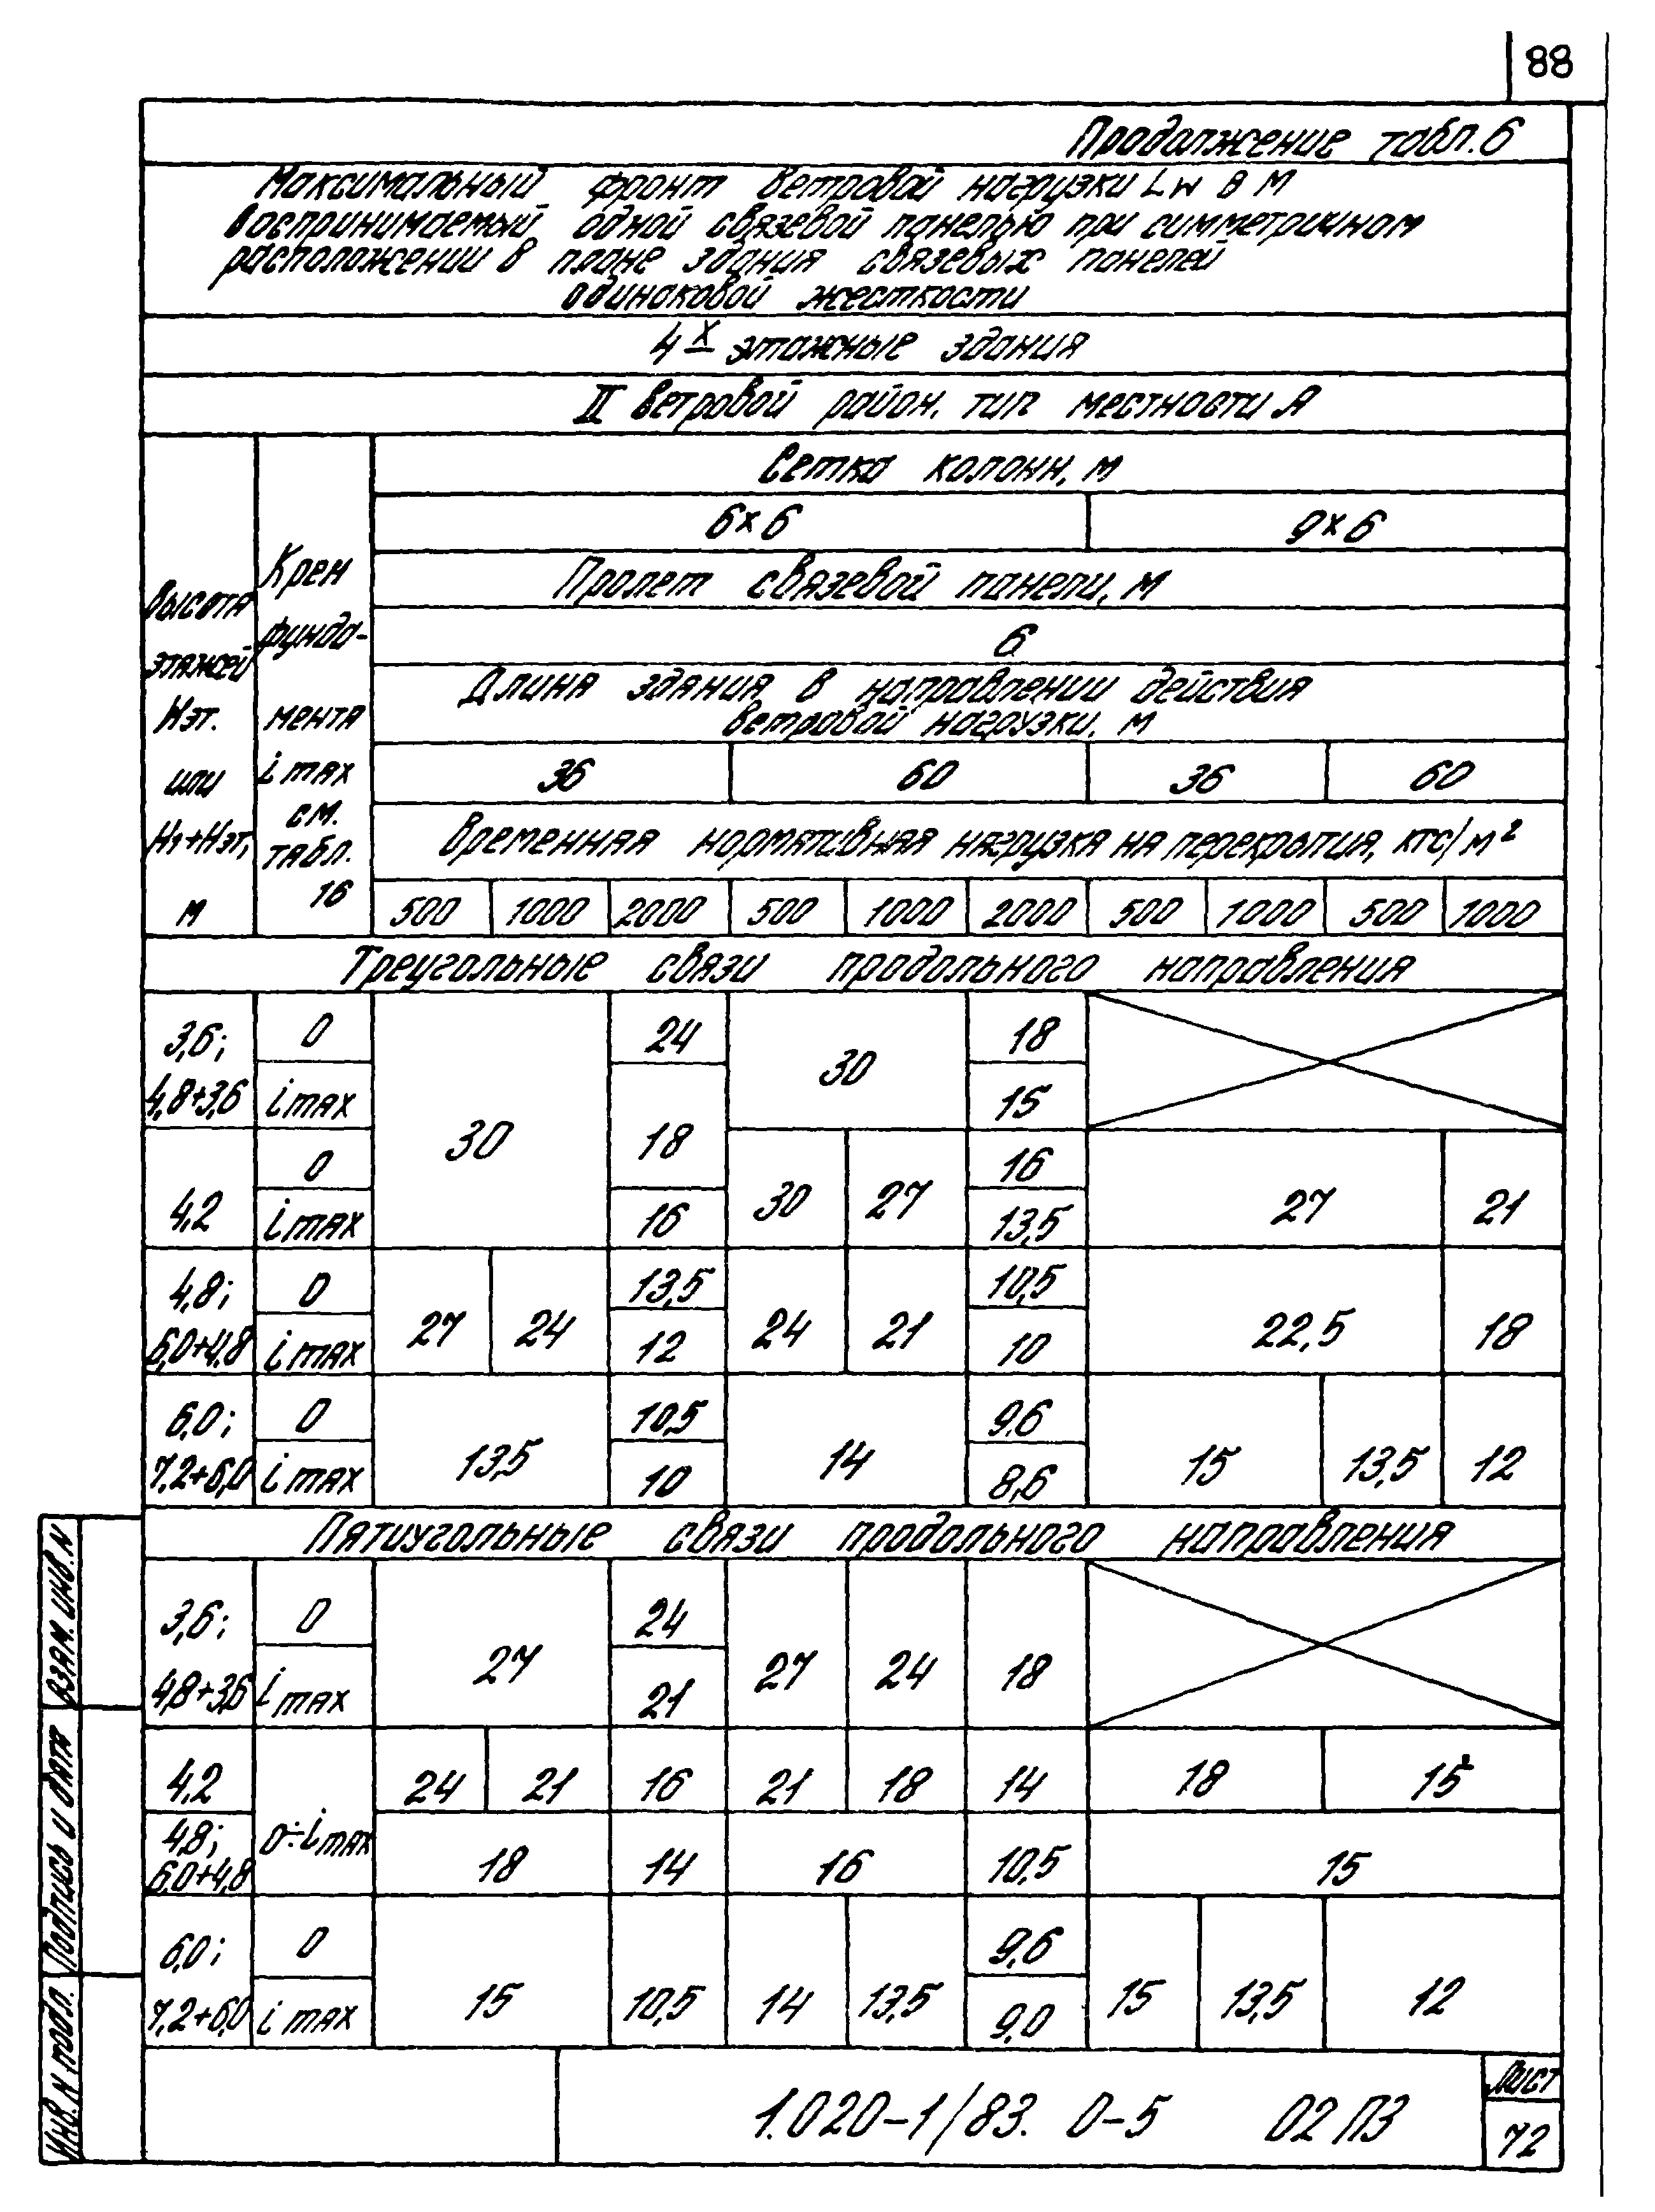 88
Продолжение табл. 6
Максимальный фронт ветровой нагрузки Lw в м
воспринимаемый одной связевой панелью при симметричном
расположении в плане здания связевых панелей
одинаковой жесткости
4х этажные здания
II ветровой район, тип местности А
Высота
этажей
Нэт.
или
Н1+Нэт,
м
Крен
фунда-
мента
i max
см.
табл.
16
Сетка колонн, м
6×6 9×6
Пролет связевой панели, м
6
Длина здания в направлении действия
ветровой нагрузки, м
36 60 36 60
Временная нормативная нагрузка на перекрытия, кгс/м²
500 1000 2000 500 1000 2000 500 1000 500 1000
Треугольные связи продольного направления
3,6; 0 24 18
30
4,8+3,6 i max 15
30 18
0 16
4,2 30 27 27 21
i max 16 13,5
4,8; 0 13,5 10,5
27 24 24 21 22,5 18
6,0+4,8 i max 12 10
6,0; 0 10,5 9,6
13,5 14 15 13,5 12
7,2+6,0 i max 10 8,6
Пятиугольные связи продольного направления
3,6; 0 24
27 27 24 18
4,8+3,6 i max 21
4,2 24 21 16 21 18 14 18 15
0÷i max
4,8;
6,0+4,8 18 14 16 10,5 15
6,0; 0 9,6
15 10,5 14 13,5 15 13,5 12
7,2+6,0 i max 9,0
Взам. инв. N
Подпись и дата
Инв. N подл.
1.020-1/83. 0-5 02 ПЗ
Лист
72